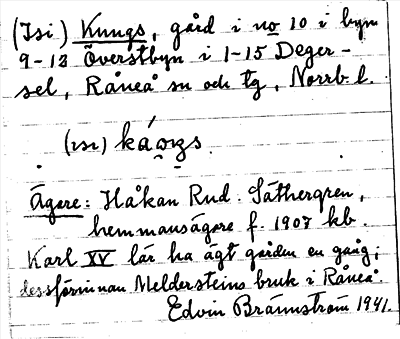 (Isi) Kungs, gård i no 10 i byn
9-13 Överstbyn i 1-15 Deger-
sel, Råneå sn och tg, Norrb. l.
(ısı)
Ägare: Håkan Rud. Säthergren,
hemmansägare f. 1907 kb.
Karl XV lär ha ägt gården en gång;
dessförinnan Meldersteins bruk i Råneå.
Edvin Brännström 1941.